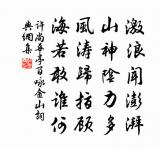 激浪聞澎湃
山神陰力多
風濤歸指顧
海若敢誰何
許尚華亭百詠金山詞
典網集